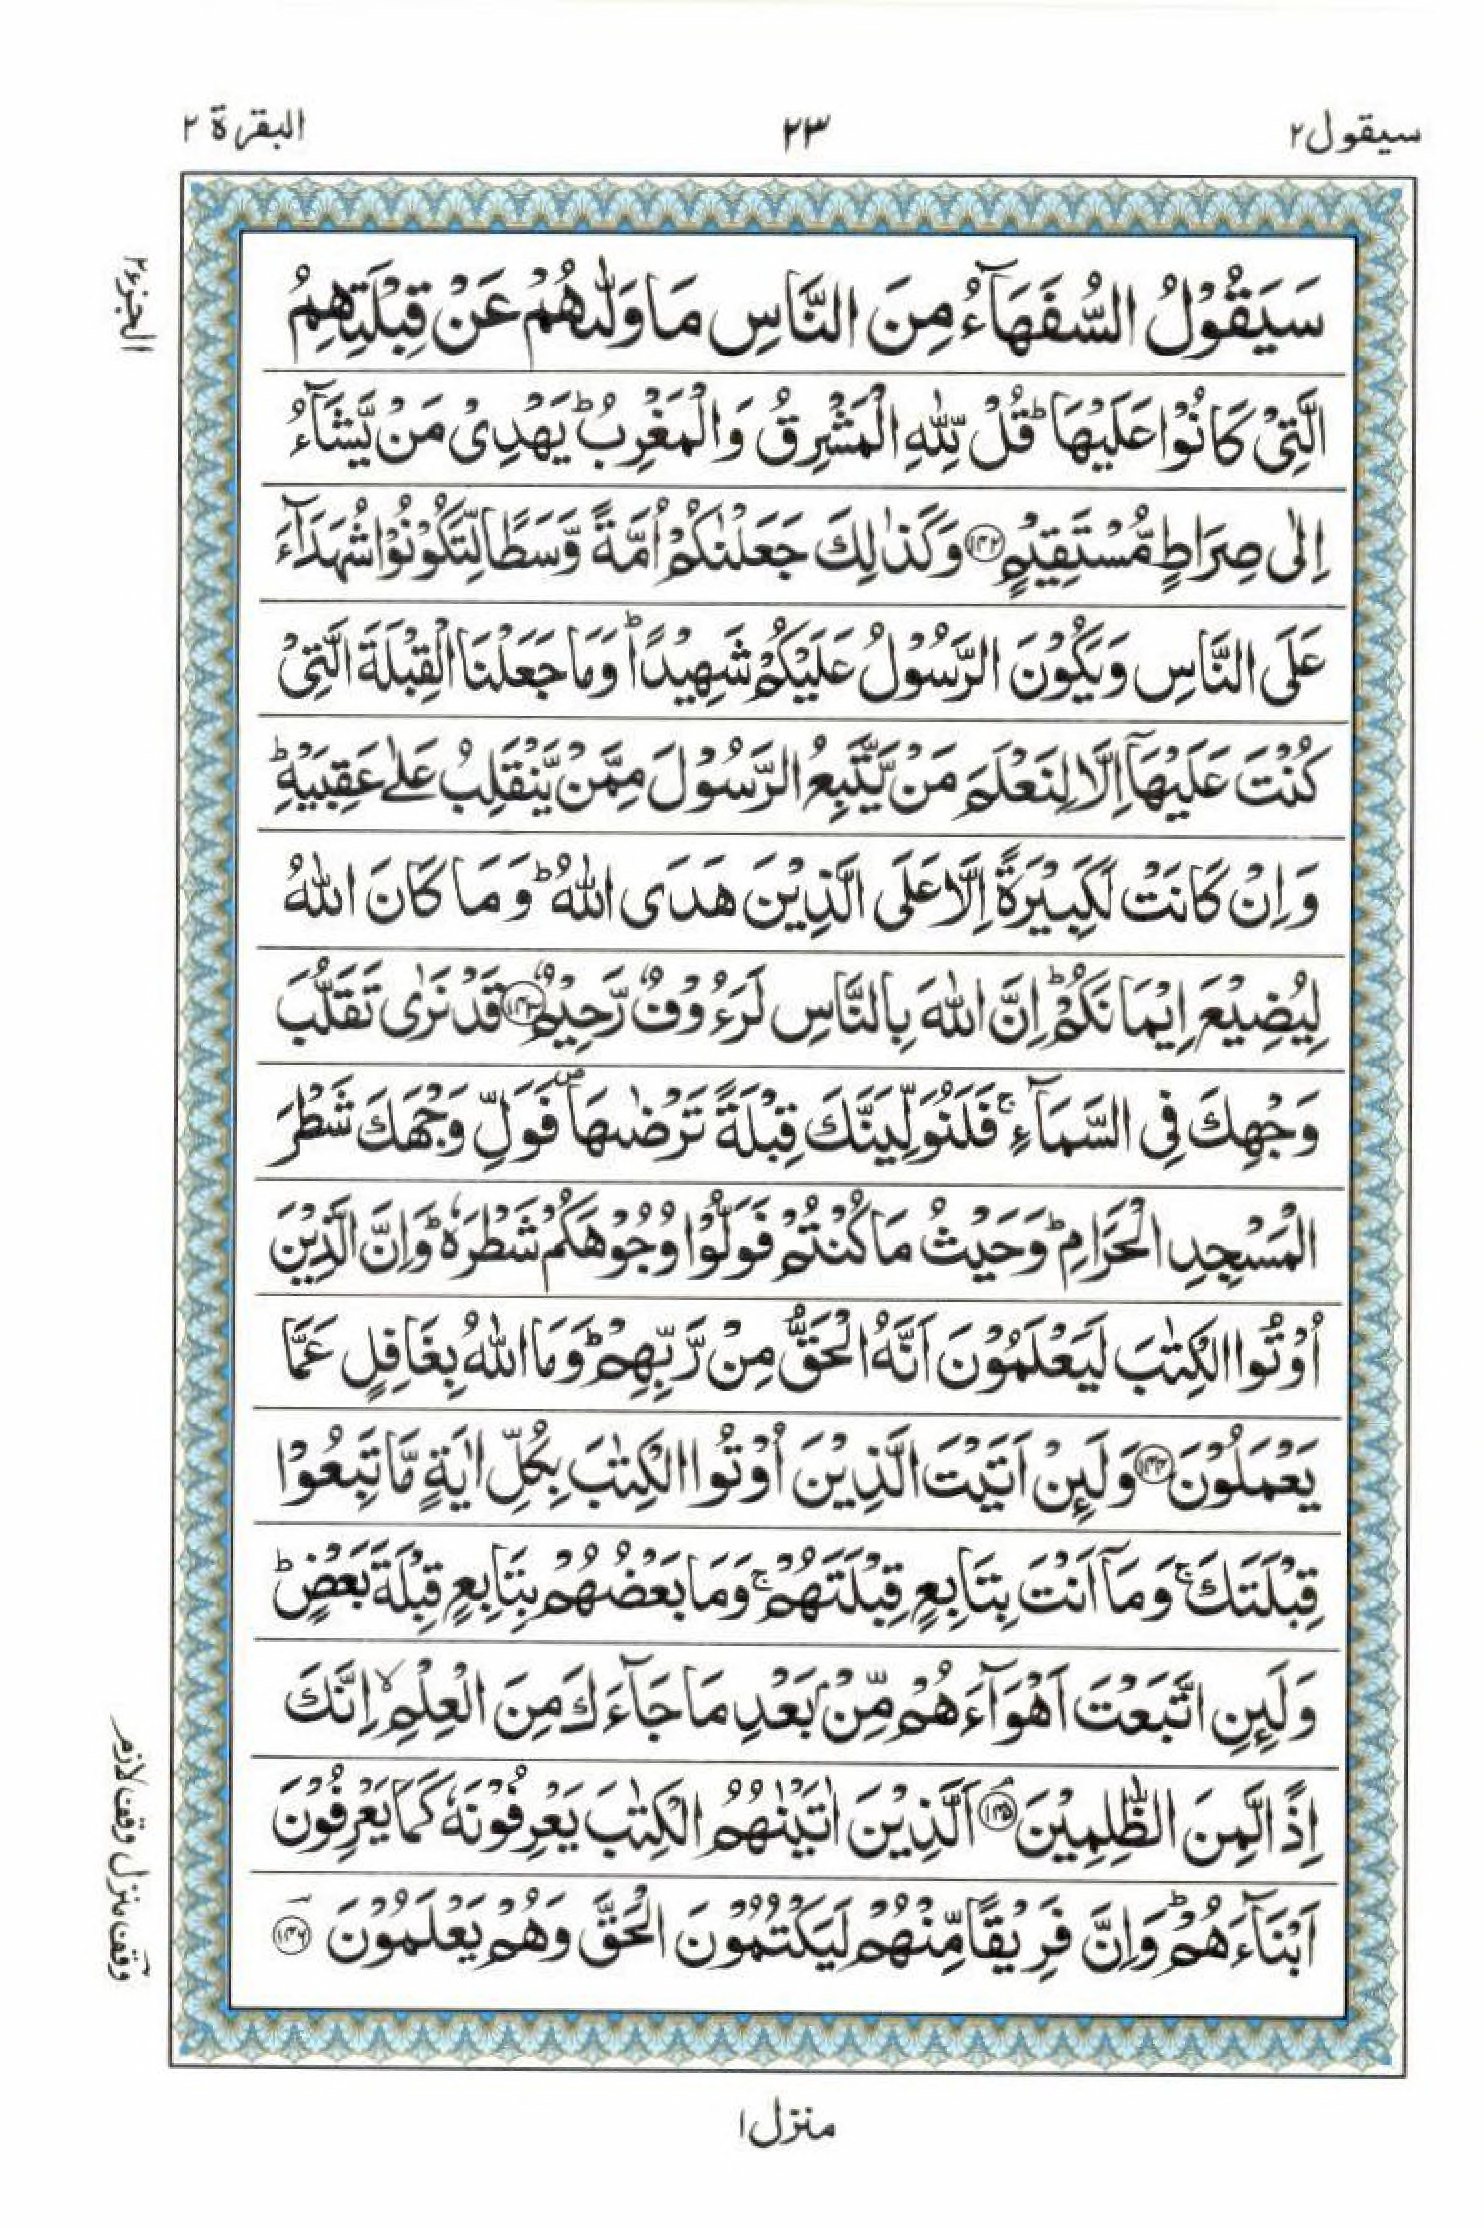 سيقول ٢
٢٣
البقرة ٢
الجزء ٢
سَيَقُوۡلُ السُّفَهَآءُ مِنَ النَّاسِ مَا وَلّٰٮهُمۡ عَنۡ قِبۡلَتِهِمُ
الَّتِىۡ كَانُوۡا عَلَيۡهَا ؕ قُلۡ لِّلّٰهِ الۡمَشۡرِقُ وَالۡمَغۡرِبُ ؕ يَهۡدِىۡ مَنۡ يَّشَآءُ
اِلٰى صِرَاطٍ مُّسۡتَقِيۡمٍ ﴿۱۴۲﴾ وَكَذٰلِكَ جَعَلۡنٰكُمۡ اُمَّةً وَّسَطًا لِّتَکُوۡنُوۡا شُهَدَآءَ
عَلَى النَّاسِ وَيَكُوۡنَ الرَّسُوۡلُ عَلَيۡكُمۡ شَهِيۡدًا ؕ وَمَا جَعَلۡنَا الۡقِبۡلَةَ الَّتِىۡ
كُنۡتَ عَلَيۡهَآ اِلَّا لِنَعۡلَمَ مَنۡ يَّتَّبِعُ الرَّسُوۡلَ مِمَّنۡ يَّنۡقَلِبُ عَلٰى عَقِبَيۡهِ ؕ
وَاِنۡ كَانَتۡ لَكَبِيۡرَةً اِلَّا عَلَى الَّذِيۡنَ هَدَى اللّٰهُ ؕ وَمَا كَانَ اللّٰهُ
لِيُضِيۡعَ اِيۡمَانَكُمۡ ؕ اِنَّ اللّٰهَ بِالنَّاسِ لَرَءُوۡفٌ رَّحِيۡمٌ ﴿۱۴۳﴾ قَدۡ نَرٰى تَقَلُّبَ
وَجۡهِكَ فِى السَّمَآءِ ۚ فَلَنُوَلِّيَنَّكَ قِبۡلَةً تَرۡضٰٮهَا ۖ فَوَلِّ وَجۡهَكَ شَطۡرَ
الۡمَسۡجِدِ الۡحَرَامِ ؕ وَحَيۡثُ مَا كُنۡتُمۡ فَوَلُّوۡا وُجُوۡهَكُمۡ شَطۡرَهٗ ؕ وَاِنَّ الَّذِيۡنَ
اُوۡتُوا الۡكِتٰبَ لَيَعۡلَمُوۡنَ اَنَّهُ الۡحَقُّ مِنۡ رَّبِّهِمۡ ؕ وَمَا اللّٰهُ بِغَافِلٍ عَمَّا
يَعۡمَلُوۡنَ ﴿۱۴۴﴾ وَلَٮِٕنۡ اَتَيۡتَ الَّذِيۡنَ اُوۡتُوا الۡكِتٰبَ بِكُلِّ اٰيَةٍ مَّا تَبِعُوۡا
قِبۡلَتَكَ ۚ وَمَآ اَنۡتَ بِتَابِعٍ قِبۡلَتَهُمۡ ۚ وَمَا بَعۡضُهُمۡ بِتَابِعٍ قِبۡلَةَ بَعۡضٍ ؕ
وَلَٮِٕنِ اتَّبَعۡتَ اَهۡوَآءَهُمۡ مِّنۡۢ بَعۡدِ مَا جَآءَكَ مِنَ الۡعِلۡمِ ۙ اِنَّكَ
اِذًا لَّمِنَ الظّٰلِمِيۡنَ ۘ﴿۱۴۵﴾ اَلَّذِيۡنَ اٰتَيۡنٰهُمُ الۡكِتٰبَ يَعۡرِفُوۡنَهٗ كَمَا يَعۡرِفُوۡنَ
اَبۡنَآءَهُمۡ ؕ وَاِنَّ فَرِيۡقًا مِّنۡهُمۡ لَيَكۡتُمُوۡنَ الۡحَقَّ وَهُمۡ يَعۡلَمُوۡنَ ﴿۱۴۶﴾
وقف منزل وقف لازم
منزل ١